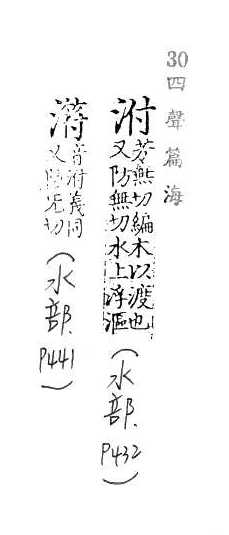 30 四聲篇海
泭 芳無切編木以渡也
又防無切水上浮漚
(水部. P432)
音泭義同
又防无切
(水部. P441)